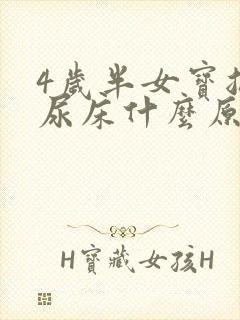 4歲半女寶
尿床什麼原
H寶藏女孩H